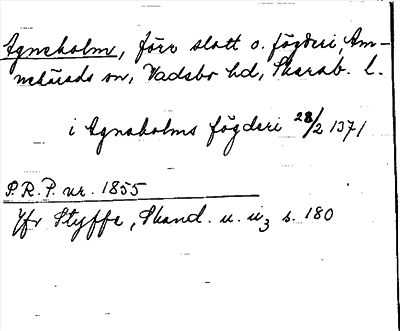 Agneholm, förv slott o. fögderi, Am-
nehärads sn, Vadsbo hd, Skarab. l.
i Agnaholms fögderi 28/2 1371
P.R.P. nr. 1855
Jfr Styffe, Skand. u. u3 s. 180